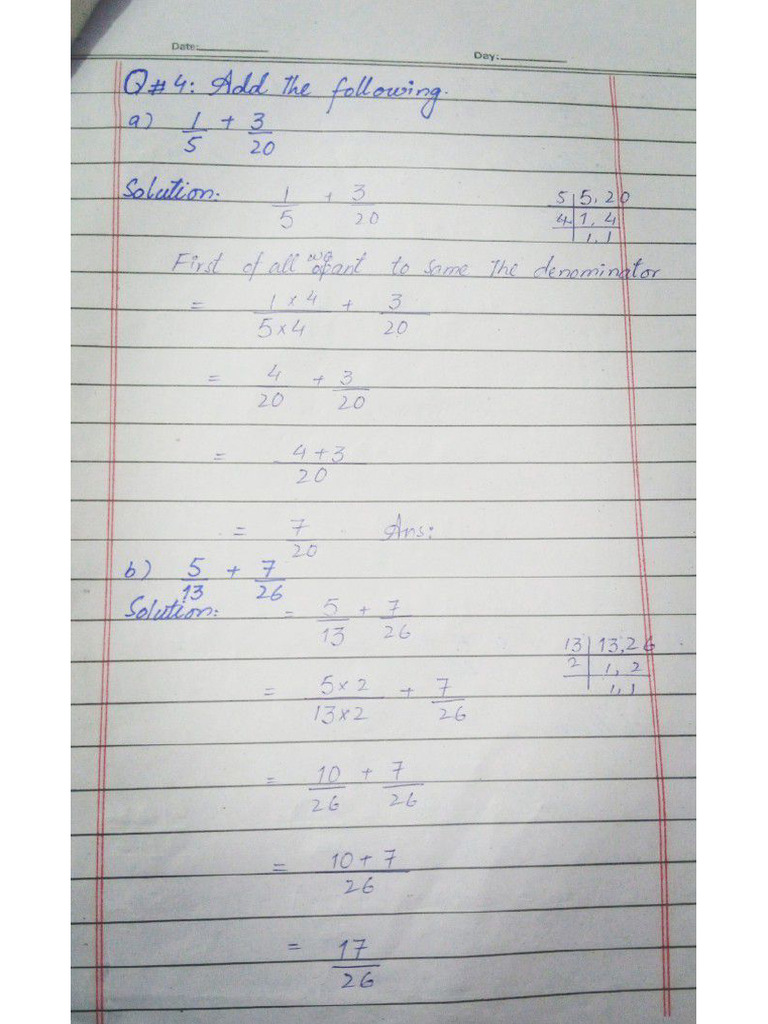 Date:
Day:
Q#4: Add the following.
a) 1/5 + 3/20
Solution: 1/5 + 3/20
5 | 5, 20
4 | 1, 4
1, 1
First of all we want to same the denominator
= 1×4/5×4 + 3/20
= 4/20 + 3/20
= 4+3/20
= 7/20 Ans:
b) 5/13 + 7/26
Solution: = 5/13 + 7/26
13 | 13, 26
2 | 1, 2
1, 1
= 5×2/13×2 + 7/26
= 10/26 + 7/26
= 10+7/26
= 17/26